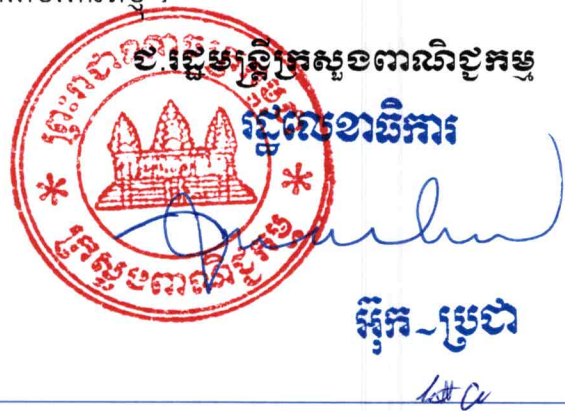 ជ.រដ្ឋមន្ត្រីក្រសួងពាណិជ្ជកម្ម
រដ្ឋលេខាធិការ
ព្រះរាជាណាចក្រកម្ពុជា
ក្រសួងពាណិជ្ជកម្ម
អ៊ុក-ប្រជា